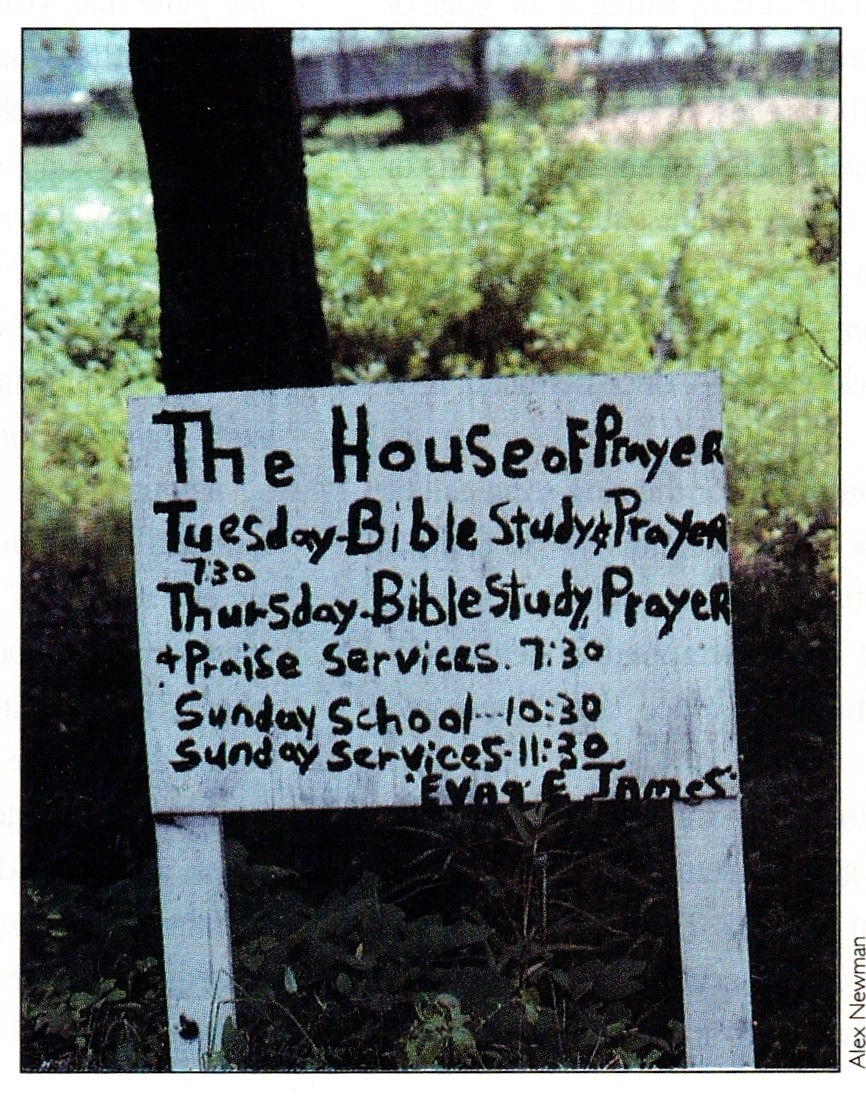 The House of Prayer
Tuesday-Bible Study & Prayer
7:30
Thursday-Bible Study, Prayer
+Praise Services. 7:30
Sunday School---10:30
Sunday Services-11:30
"Evag E James"
Alex Newman